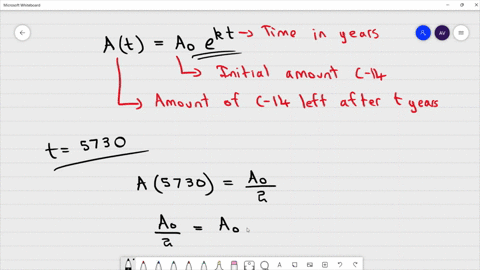 Microsoft Whiteboard
AV
A(t) = A₀ e^{kt} → Time in years
Initial amount C-14
Amount of C-14 left after t years
t = 5730
A(5730) = A₀/2
A₀/2 = A₀